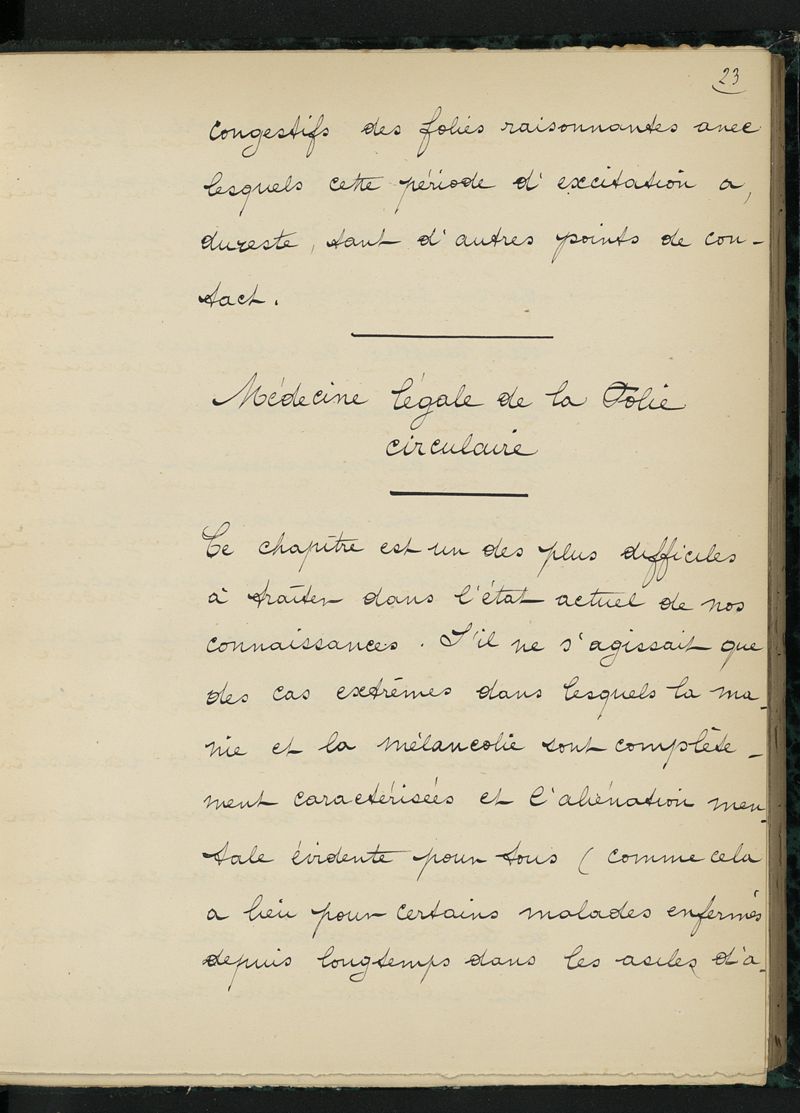 23
congestifs des folies raisonnantes avec
lesquels cette période d'excitation a,
dureste, tant d'autres points de con-
tact.
Médecine légale de la Folie
circulaire
Ce chapître est un des plus difficiles
à traiter dans l'état actuel de nos
connaissances. S'il ne s'agissait que
des cas extrêmes dans lesquels la ma-
nie et la mélancolie sont complète-
ment caractérisées et l'aliénation men-
tale évidente pour tous (comme cela
a lieu pour certains malades enfermés
depuis longtemps dans les asiles d'a-